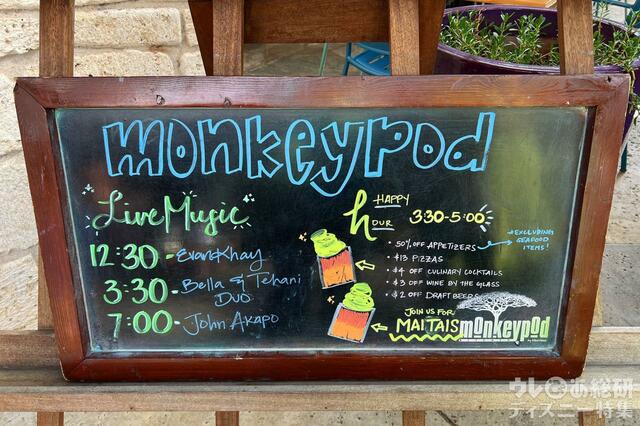 monkeypod
Live Music
12:30 - Evan Khay
3:30 - Bella & Tehani
Duo
7:00 - John Akapo
happy
hour
3:30-5:00
• 50% off appetizers
→ excluding
seafood
items!
• $13 pizzas
• $4 off culinary cocktails
• $3 off wine by the glass
• $2 off draft beer
Join us for
Mai Tais
monkeypod
ウレぴあ総研
ディズニー特集